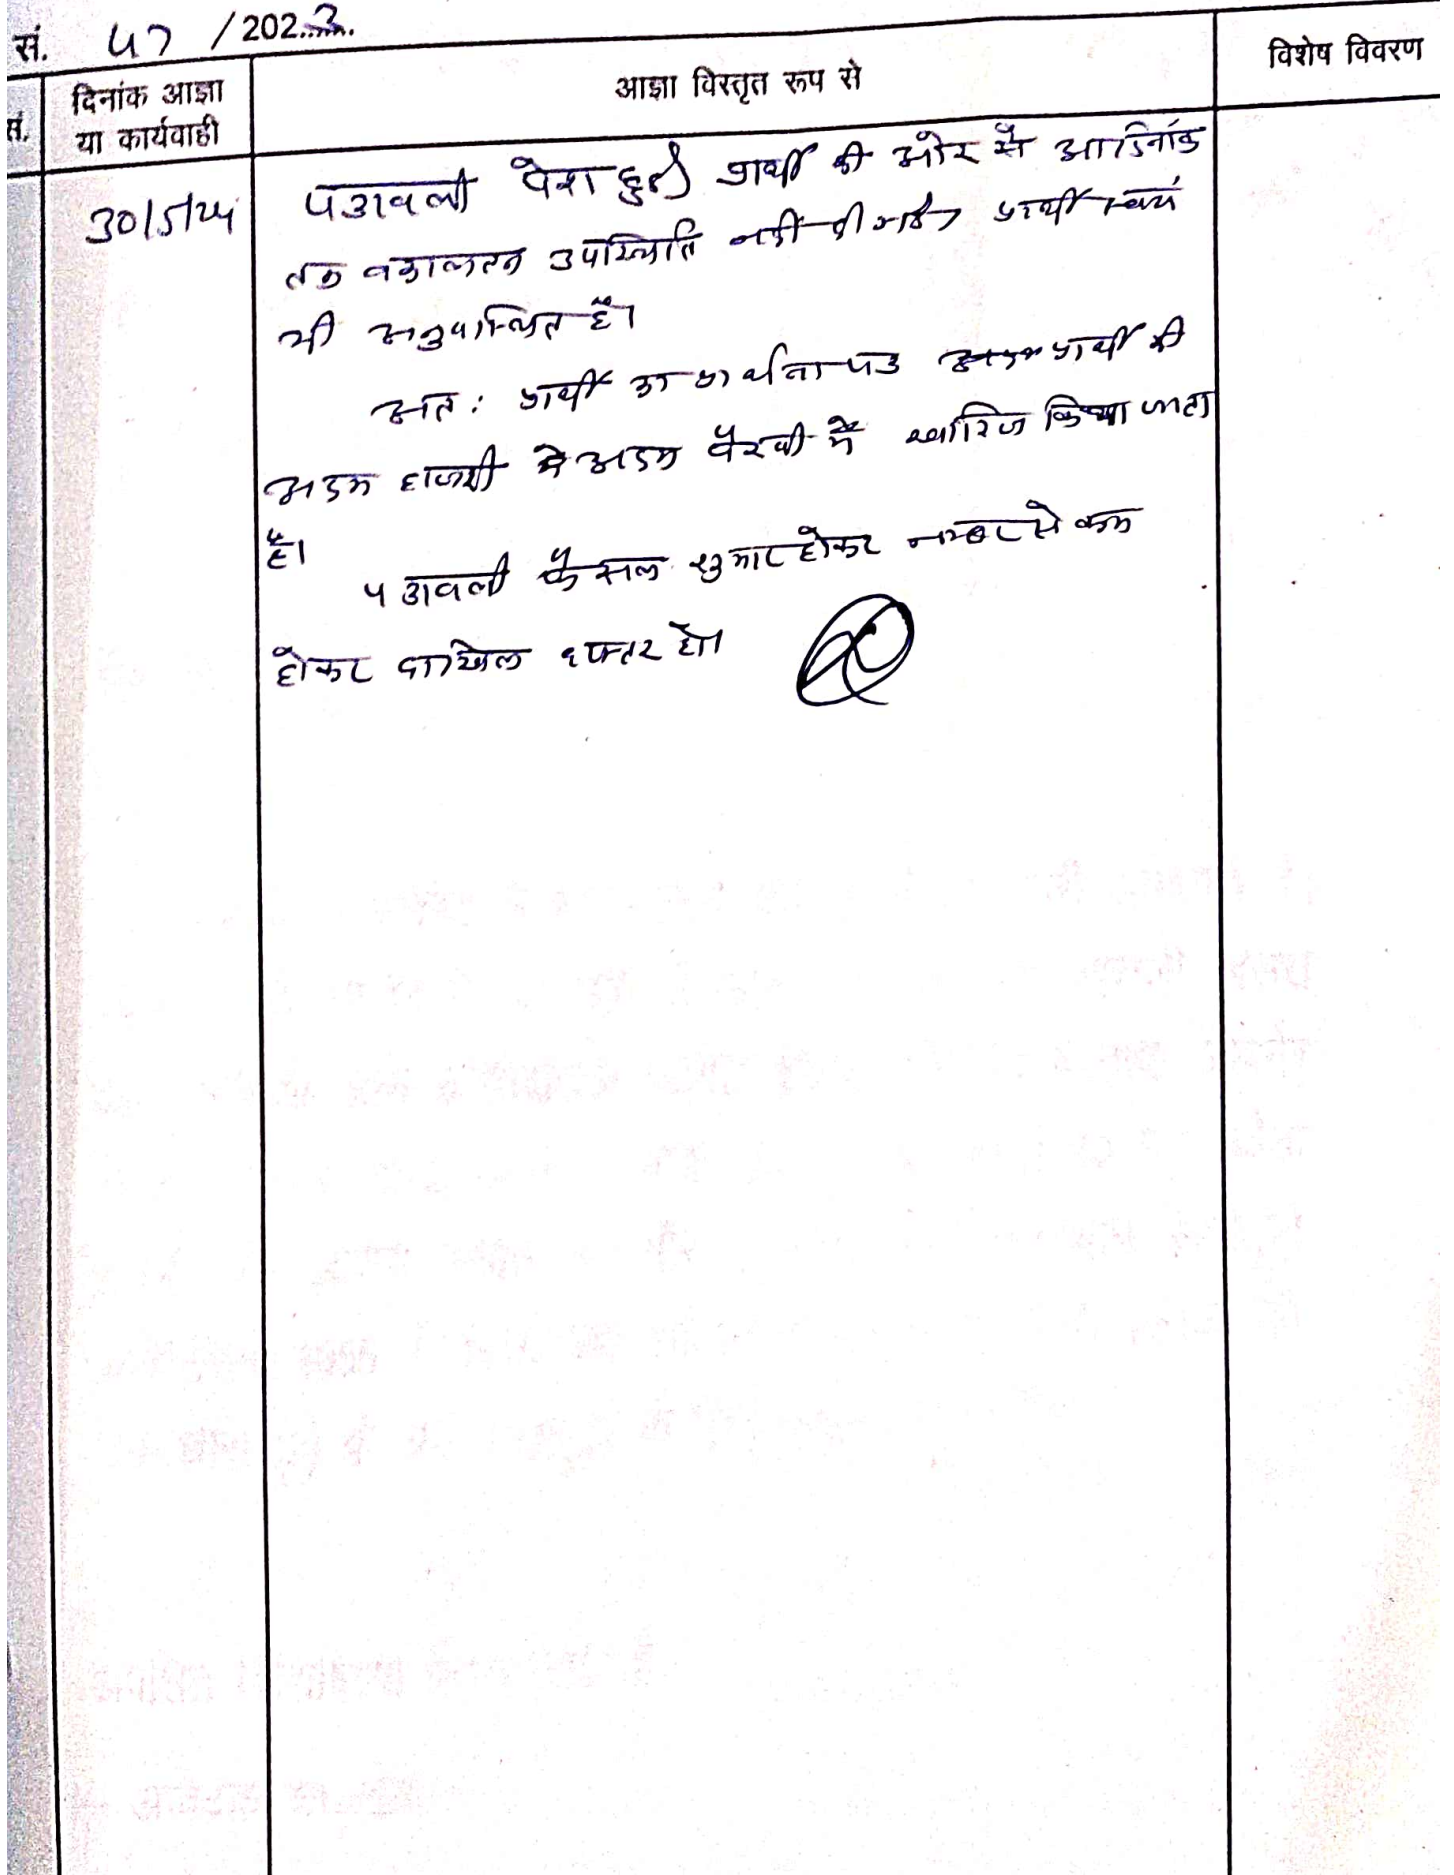 सं. 47 /2023.
सं.
दिनांक आज्ञा
या कार्यवाही
आज्ञा विस्तृत रूप से
विशेष विवरण
30/5/24
पत्रावली पेश हुई प्रार्थी की ओर से आ दिनांक
तक वकालतन उपस्थिति नहीं दी गई, प्रार्थी स्वयं
भी अनुपस्थित है।
अतः प्रार्थी का प्रार्थना पत्र प्रार्थी की
अदम हाजरी में अदम पैरवी में खारिज किया जाता
है।
पत्रावली फैसल शुमार होकर नम्बर से कम
होकर दाखिल दफ्तर हो।